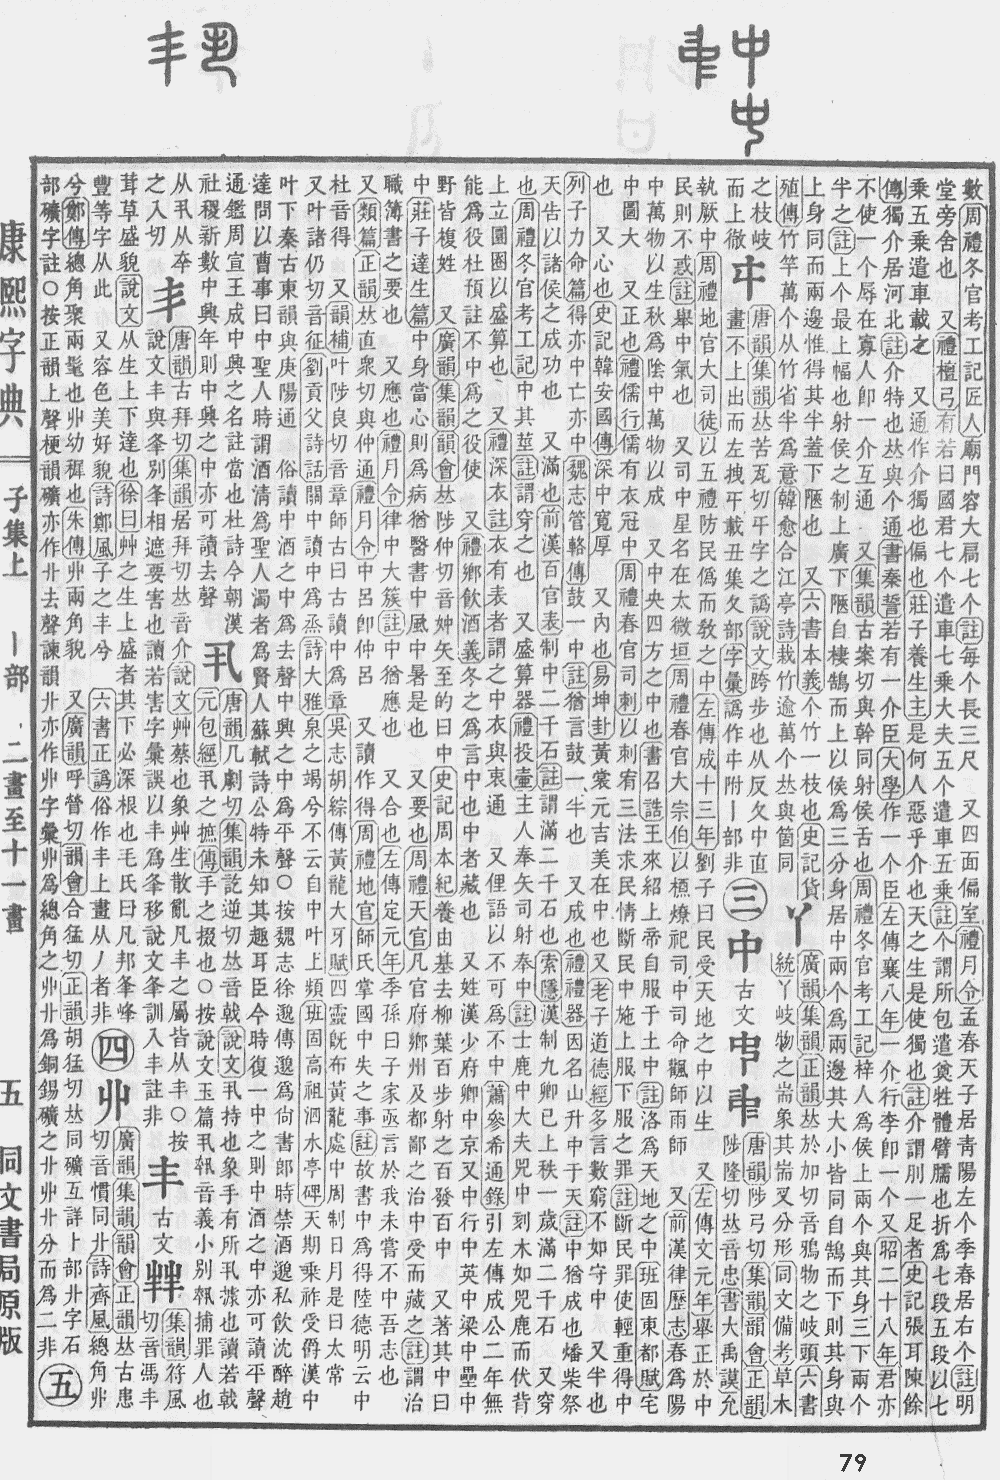 數周禮冬官考工記匠人廟門容大扃七个註每个長三尺　又四面偏室禮月令孟春天子居靑陽左个季春居右个註明
堂旁舍也　又禮檀弓有若曰國君七个遣車七乗大夫五个遣車五乗註个謂所包遣奠牲體臂臑也折爲七段五段以七
乗五乗遣車載之　又通作介獨也偏也莊子養生主是何人惡乎介也天之生是使獨也註介謂刖一足者史記張耳陳餘
傳獨介居河北註介特也𠀤與个通書秦誓若有一介臣大學作一个臣左傳襄八年一介行李卽一个又昭二十八年君亦
不使一个辱在寡人卽一介互通　又集韻古案切與幹同射侯舌也周禮冬官考工記梓人爲侯上兩个與其身三下兩个
半之註上个最上幅也射侯之制上廣下陿自棲鵠而上以侯爲三分身居中兩个爲兩邊其大小皆同自鵠而下則其身與
上身同而兩邊惟得其半蓋下陿也　又六書本義个竹一枝也史記貨
殖傳竹竿萬个从竹省半爲意韓愈合江亭詩栽竹逾萬个𠀤與箇同
丫
廣韻集韻正韻𠀤於加切音鴉物之岐頭六書
統丫岐物之耑象其耑叉分形同文備考草木
之枝岐
而上徹
㐄
唐韻集韻𠀤苦瓦切㐄字之譌說文跨步也从反夂中直
畫不上出而左拽㐄載丑集夂部字彙譌作㐄附丨部非
三
中
古文
𠁧𠁩
唐韻陟弓切集韻韻會正韻
陟隆切𠀤音忠書大禹謨允
執厥中周禮地官大司徒以五禮防民僞而敎之中左傳成十三年劉子曰民受天地之中以生　又左傳文元年舉正於中
民則不惑註舉中氣也　又司中星名在太微垣周禮春官大宗伯以槱燎祀司中司命觀師雨師　又前漢律歷志春爲陽
中萬物以生秋爲陰中萬物以成　又中央四方之中也書召誥王來紹上帝自服于土中註洛爲天地之中班固東都賦宅
中圖大　又正也禮儒行儒有衣冠中周禮春官司刺以刺宥三法求民情斷民中施上服下服之罪註斷民罪使輕重得中
也　又心也史記韓安國傳深中寬厚　又內也易坤卦黃裳元吉美在中也又老子道德經多言數窮不如守中　又半也
列子力命篇得亦中亡亦中魏志管輅傳鼓一中註猶言鼓一半也　又成也禮禮器因名山升中于天註中猶成也燔柴祭
天告以諸侯之成功也　又滿也前漢百官表制中二千石註謂滿二千石也索隱漢制九卿已上秩一歲滿二千石　又穿
也周禮冬官考工記中其莖註謂穿之也　又盛算器禮投壷主人奉矢司射奉中註士鹿中大夫兕中刻木如兕鹿而伏背
上立圓圈以盛算也　又禮深衣註衣有表者謂之中衣與衷通　又俚語以不可爲不中蕭參希通錄引左傳成公二年無
能爲役杜預註不中爲之役使　又禮鄕飮酒義冬之爲言中也中者藏也　又姓漢少府卿中京又中行中英中梁中壘中
野皆複姓　又廣韻集韻韻會𠀤陟仲切音妕矢至的曰中史記周本紀養由基去柳葉百步射之百發百中　又著其中曰
中莊子達生篇中身當心則爲病猶醫書中風中暑是也　又要也周禮天官凡官府鄕州及都鄙之治中受而藏之註謂治
職簿書之要也　又應也禮月令律中大簇註中猶應也　又合也左傳定元年季孫曰子家亟言於我未嘗不中吾志也
又類篇正韻𠀤直衆切與仲通禮月令中呂卽仲呂　又讀作得周禮地官師氏掌國中失之事註故書中爲得陸德明云中
杜音得　又韻補叶陟良切音章師古曰古讀中爲章吳志胡綜傳黃龍大牙賦四靈旣布黃龍處中周制日月是曰太常
又叶諸仍切音征劉貢父詩話關中讀中爲烝詩大雅泉之竭兮不云自中叶上頻班固高祖泗水亭碑天期乗祚受爵漢中
叶下秦古東韻與庚陽通　俗讀中酒之中爲去聲中興之中爲平聲〇按魏志徐邈傳邈爲尙書郎時禁酒邈私飮沈醉趙
達問以曹事曰中聖人時謂酒淸爲聖人濁者爲賢人蘇軾詩公特未知其趣耳臣今時復一中之則中酒之中亦可讀平聲
通鑑周宣王成中興之名註當也杜詩今朝漢
社稷新數中興年則中興之中亦可讀去聲
丮
唐韻几劇切集韻訖逆切𠀤音戟說文丮持也象手有所丮據也讀若戟
元包經丮之摭傳手之掇也〇按說文玉篇丮㧕音義小别㧕捕罪人也
从丮从㚔
之入切
丯
唐韻古拜切集韻居拜切𠀤音介說文艸蔡也象艸生散亂凡丯之屬皆从丯〇按
說文丯與夆別夆相遮要害也讀若害字彙誤以丯爲夆移說文夆訓入丯註非
丰
古文
𡴀
集韻符風
切音馮丰
茸草盛貌說文从生上下達也徐曰艸之生上盛者其下必深根也毛氏曰凡邦夆峰
豐等字从此　又容色美好貌詩鄭風子之丰兮　六書正譌俗作丰上畫从丿者非
四
丱
廣韻集韻韻會正韻𠀤古患
切音慣同卝詩齊風總角丱
兮鄭傳總角聚兩髦也丱幼穉也朱傳丱兩角貌　又廣韻呼瞢切韻會合猛切正韻胡猛切𠀤同礦互詳上部卝字石
部礦字註〇按正韻上聲梗韻礦亦作卝去聲諫韻卝亦作丱字彙丱爲總角之丱卝爲銅錫礦之卝丱卝分而爲二非
五
康熙字典
子集上　丨部　二畫至十一畫
五
同文書局原版
79